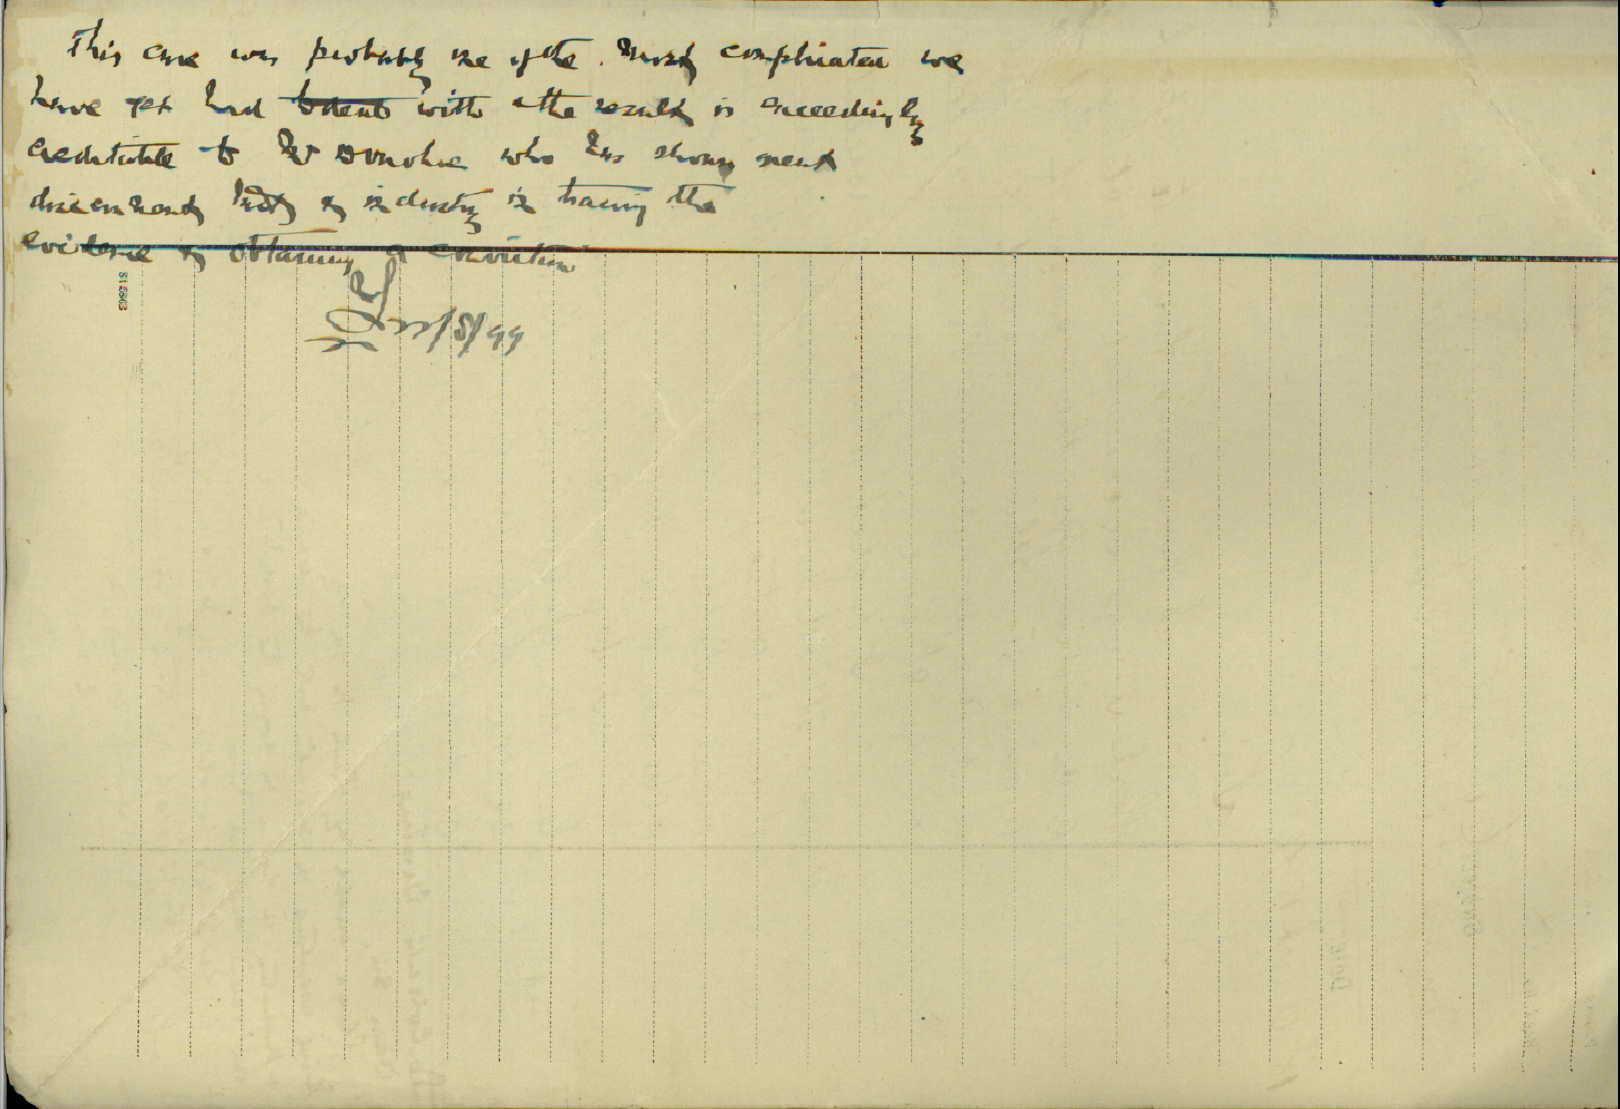 This case was probably one of the most complicated we
have yet had to deal with & the result is exceedingly
creditable to Mr Donohoe who has shown great
discernment tact & industry in tracing the
evidence & obtaining a conviction
22/5/99
Date